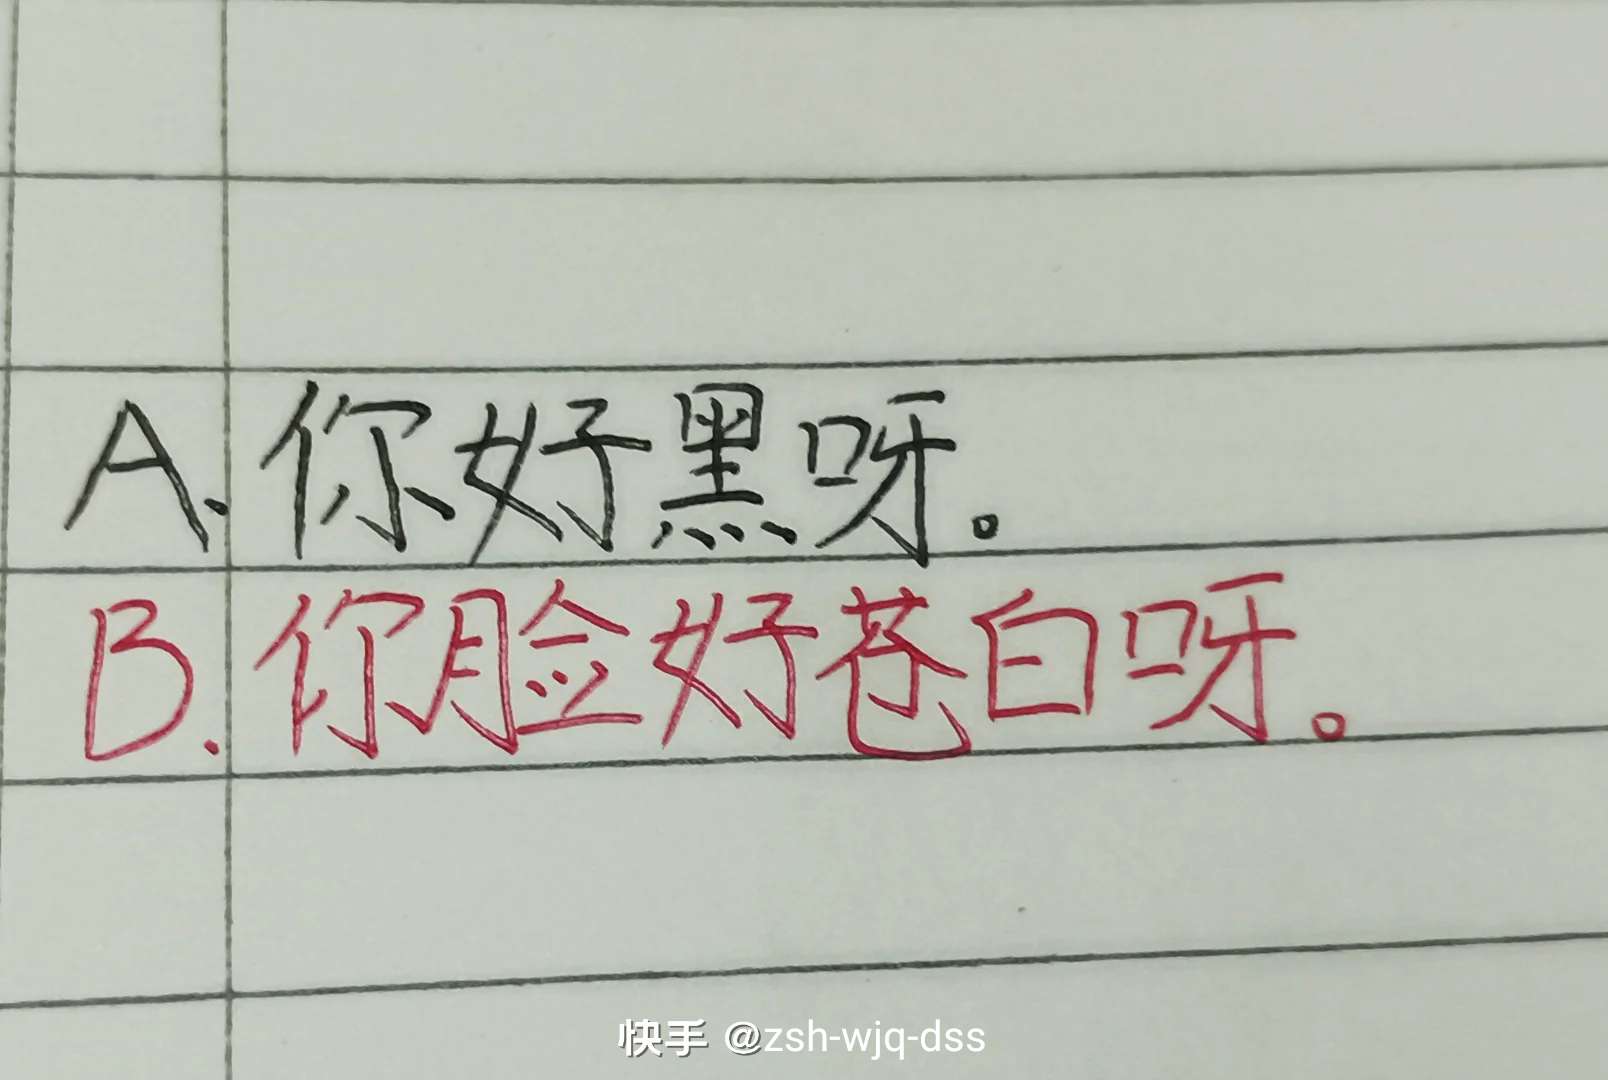 A. 你好黑呀。
B. 你脸好苍白呀。
快手 @zsh-wjq-dss